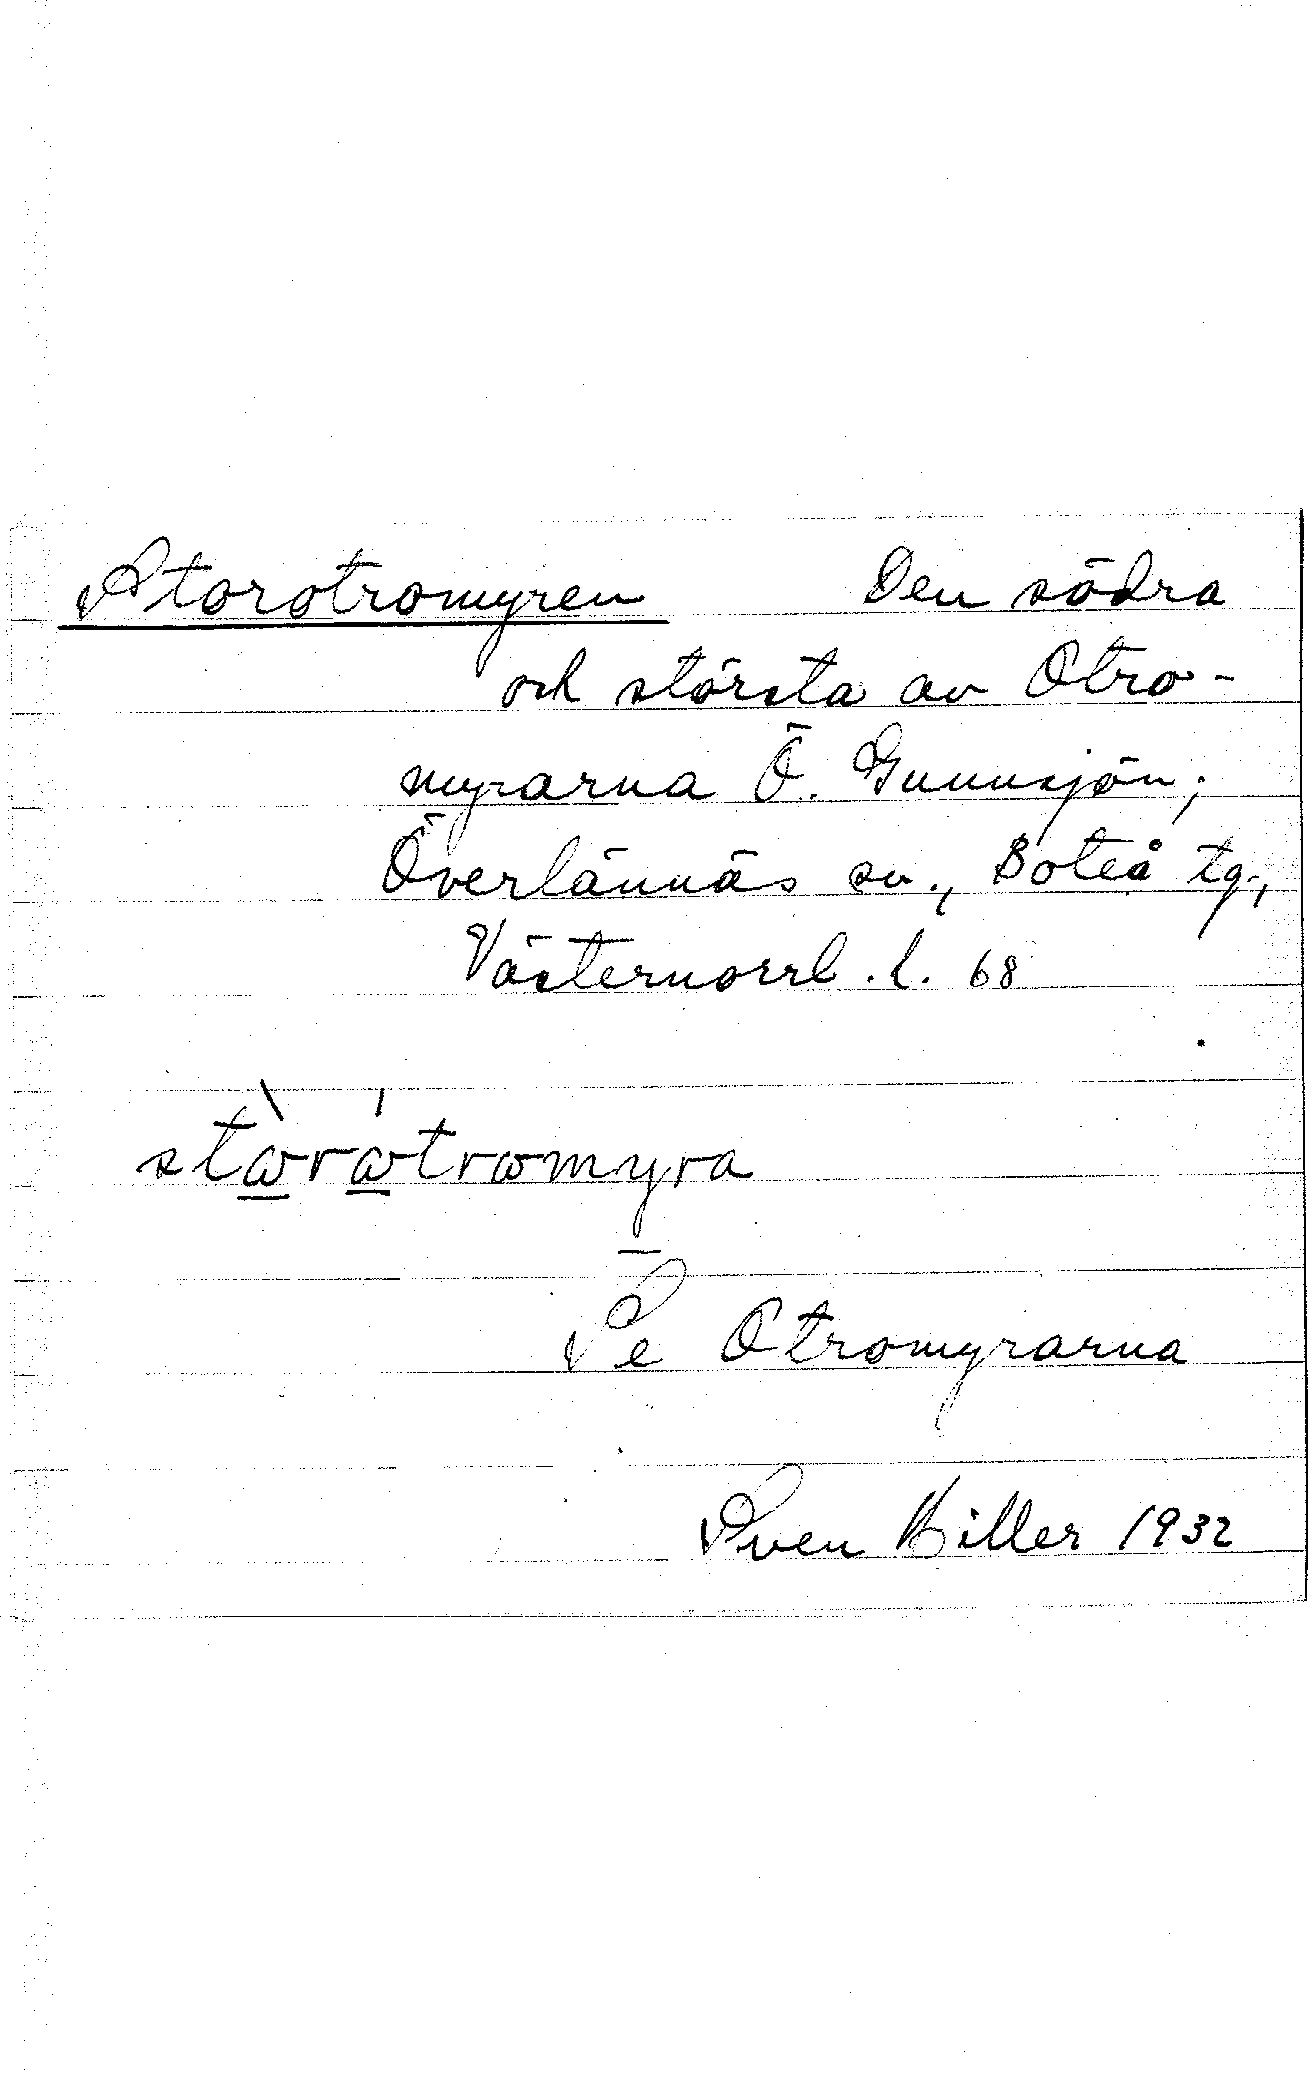 Storotromyren Den södra
och största av Otro-
myrarna Ö. Gunnsjön;
Överlännäs sn., Boteå tg.,
Västernorrl. l. 68
stɷ̀rɷ́tromyra
Se Otromyrarna
Sven Hiller 1932